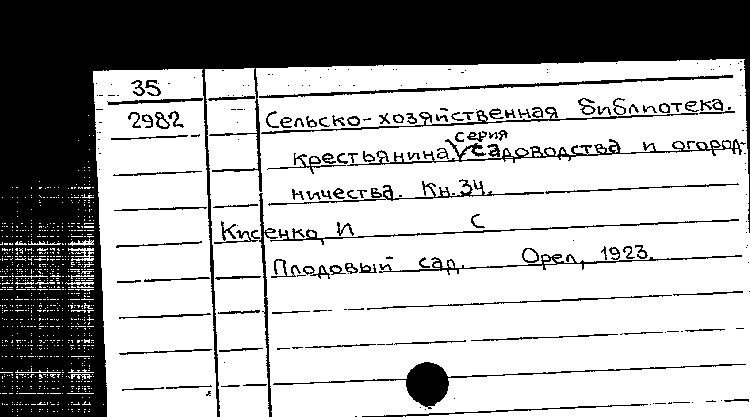 35
2982 Сельско-хозяйственная библиотека.
серия
крестьянина. V садоводства и огород-
ничества. Кн.34.
Кисенко, И С
Плодовый сад. Орел, 1923.